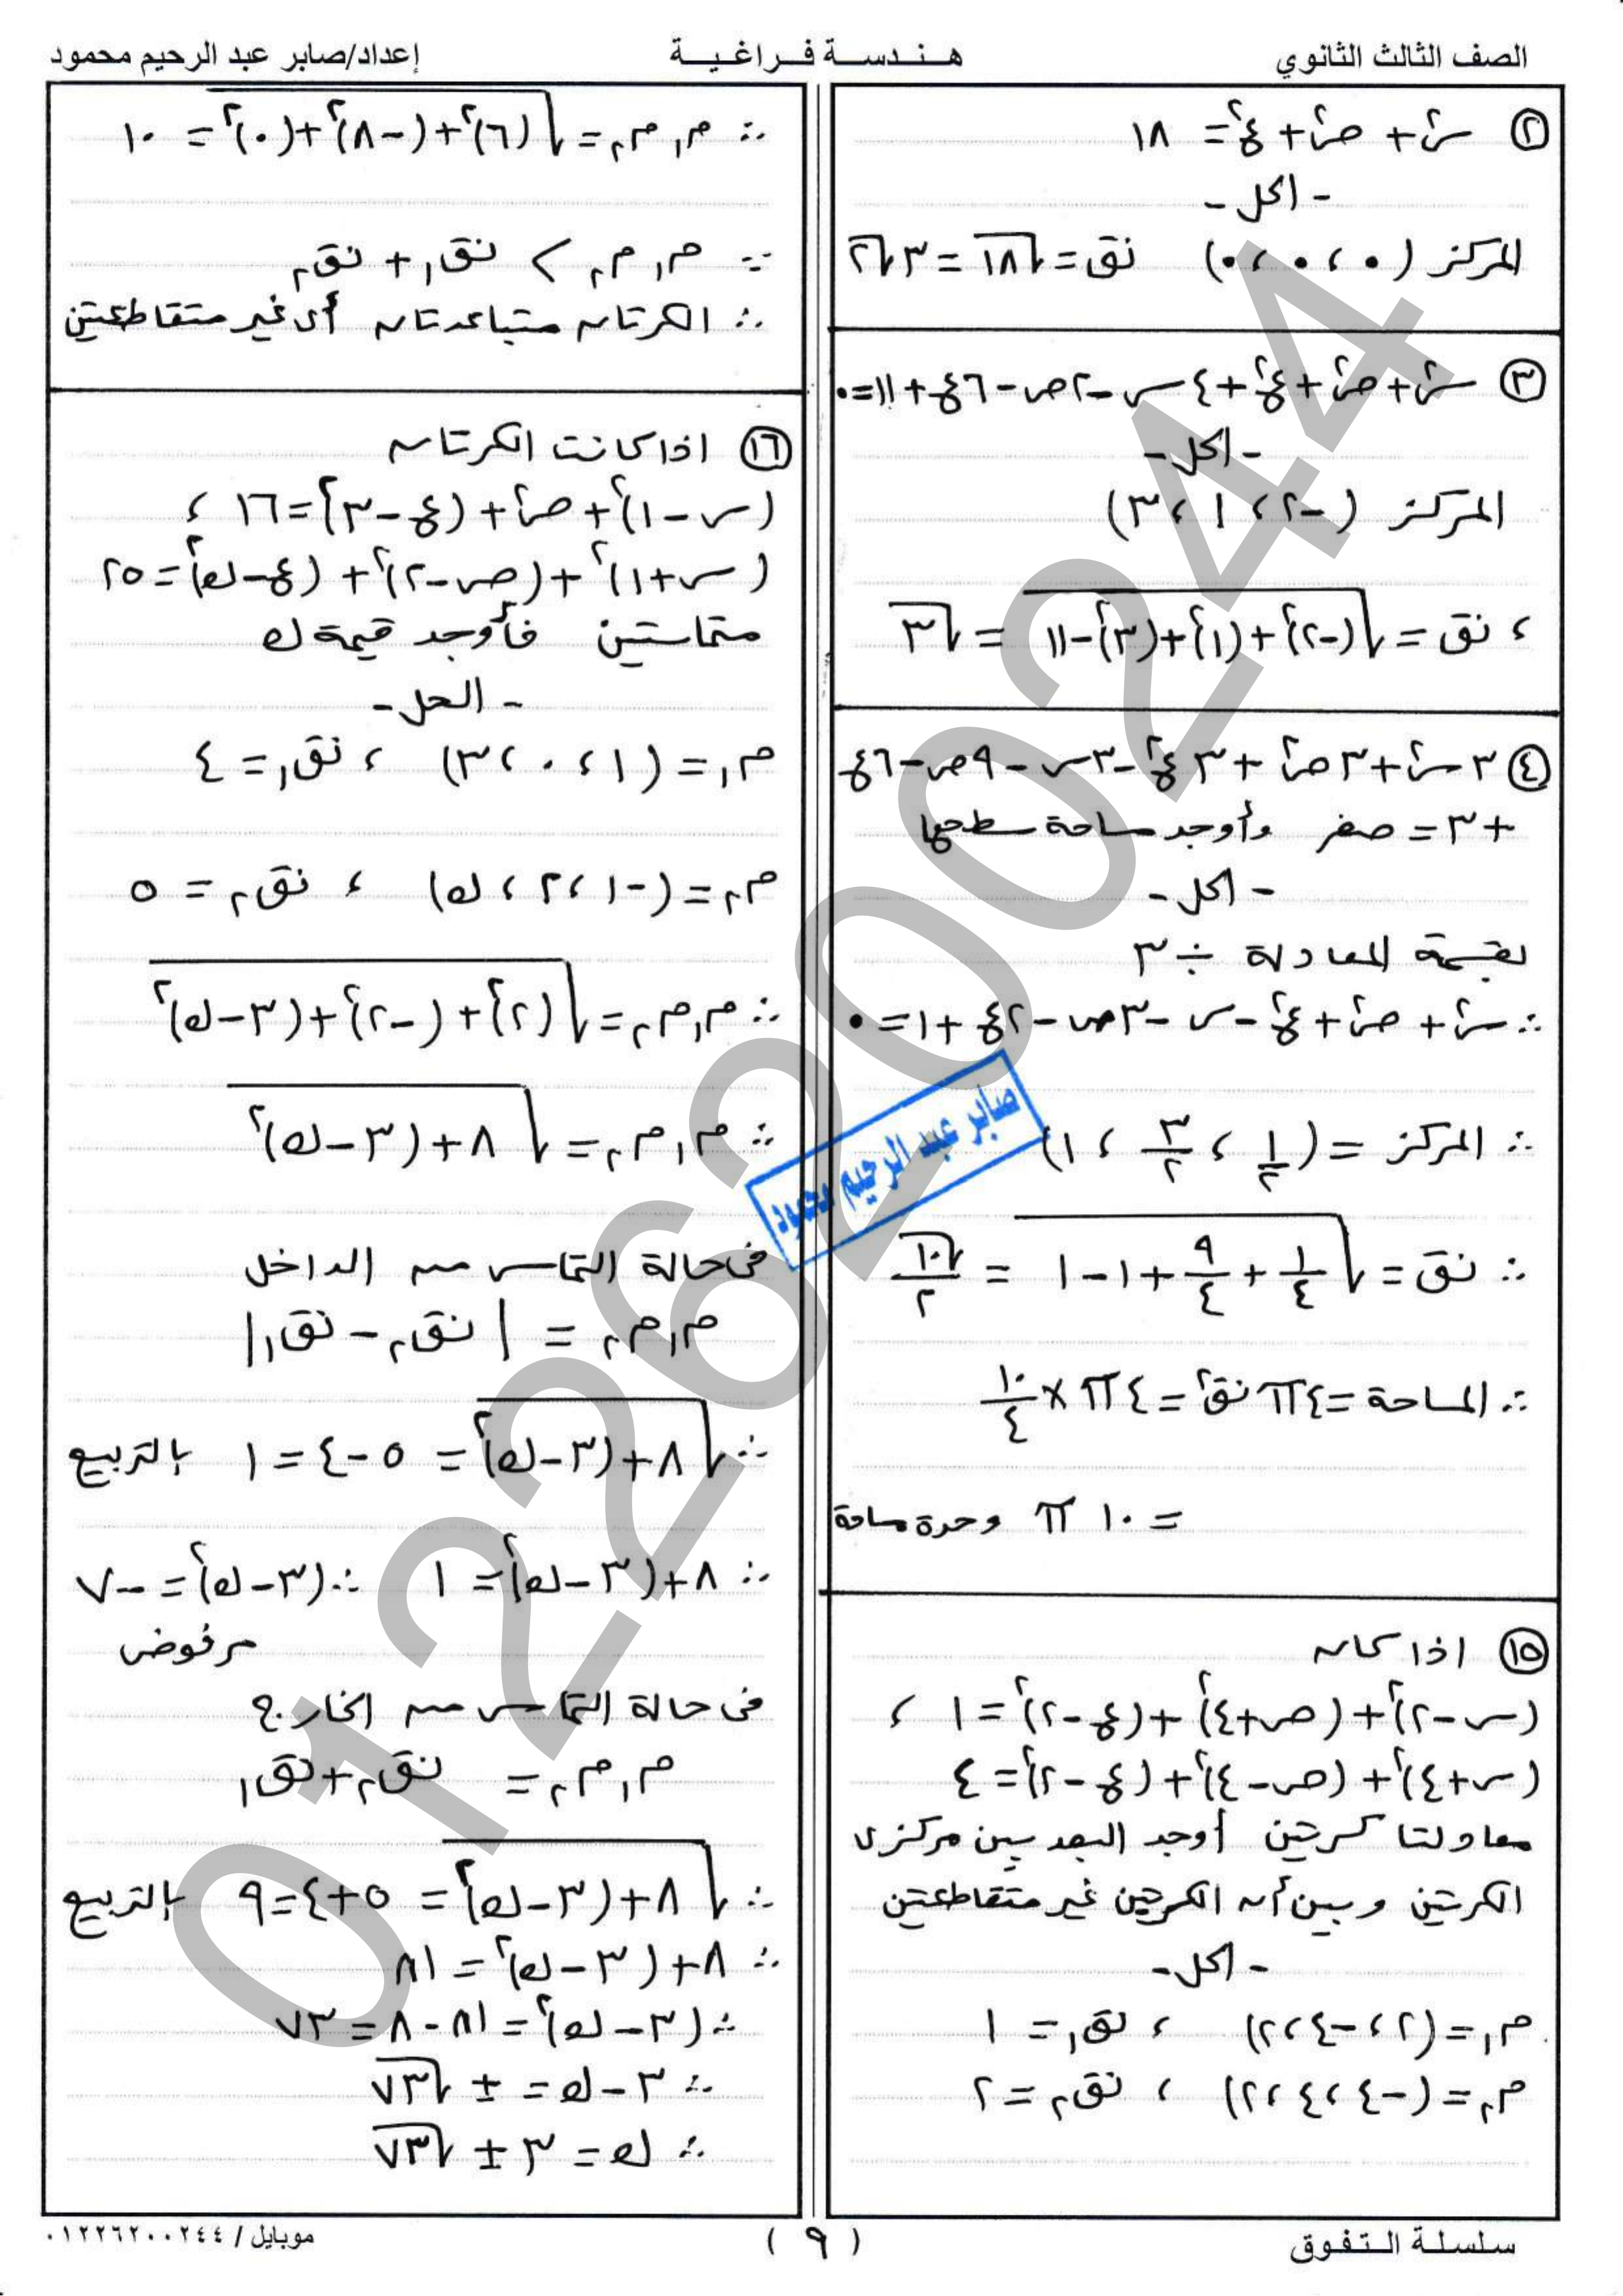 الصف الثالث الثانوي
هندسة فراغية
إعداد/صابر عبد الرحيم محمود
② س² + ص² + ع² = ١٨
- الحل -
المركز (٠ ، ٠ ، ٠) نق = √١٨ = ٣√٢
③ س² + ص² + ع² + ٤س - ٢ص - ٦ع + ١١ = ٠
- الحل -
المركز (-٢ ، ١ ، ٣)
، نق = √((-٢)² + (١)² + (٣)² - ١١) = √٣
④ ٣س² + ٣ص² + ٣ع² - ٣س - ٩ص - ٦ع
+ ٣ = صفر وأوجد مساحة سطحها
- الحل -
بقسمة المعادلة ÷ ٣
∴ س² + ص² + ع² - س - ٣ص - ٢ع + ١ = ٠
∴ المركز = (١/٢ ، ٣/٢ ، ١)
∴ نق = √(١/٤ + ٩/٤ + ١ - ١) = √١٠/٢
∴ المساحة = ٤π نق² = ٤π × ١٠/٤
= ١٠ π وحدة مساحة
⑮ اذا كان
(س - ٢)² + (ص + ٤)² + (ع - ٢)² = ١ ،
(س + ٤)² + (ص - ٤)² + (ع - ٢)² = ٤
معادلتا كرتين أوجد البعد بين مركزى
الكرتين وبين أن الكرتين غير متقاطعتين
- الحل -
م١ = (٢ ، -٤ ، ٢) ، نق١ = ١
م٢ = (-٤ ، ٤ ، ٢) ، نق٢ = ٢
∴ م١م٢ = √((٦)² + (-٨)² + (٠)²) = ١٠
∵ م١م٢ > نق١ + نق٢
∴ الكرتان متباعدتان أى غير متقاطعتين
⑯ اذا كانت الكرتان
(س - ١)² + ص² + (ع - ٣)² = ١٦ ،
(س + ١)² + (ص - ٢)² + (ع - ك)² = ٢٥
متماستين فأوجد قيمة ك
- الحل -
م١ = (١ ، ٠ ، ٣) ، نق١ = ٤
م٢ = (-١ ، ٢ ، ك) ، نق٢ = ٥
∴ م١م٢ = √((٢)² + (-٢)² + (٣ - ك)²)
∴ م١م٢ = √(٨ + (٣ - ك)²)
فى حالة التماس من الداخل
م١م٢ = |نق٢ - نق١|
∴ √(٨ + (٣ - ك)²) = ٥ - ٤ = ١ بالتربيع
∴ ٨ + (٣ - ك)² = ١ ∴ (٣ - ك)² = -٧
مرفوض
فى حالة التماس من الخارج
م١م٢ = نق٢ + نق١
∴ √(٨ + (٣ - ك)²) = ٥ + ٤ = ٩ بالتربيع
∴ ٨ + (٣ - ك)² = ٨١
∴ (٣ - ك)² = ٨١ - ٨ = ٧٣
∴ ٣ - ك = ± √٧٣
∴ ك = ٣ ± √٧٣
صابر عبد الرحيم محمود
01226200244
سلسلة التفوق
( ٩ )
موبايل / ٠١٢٢٦٢٠٠٢٤٤